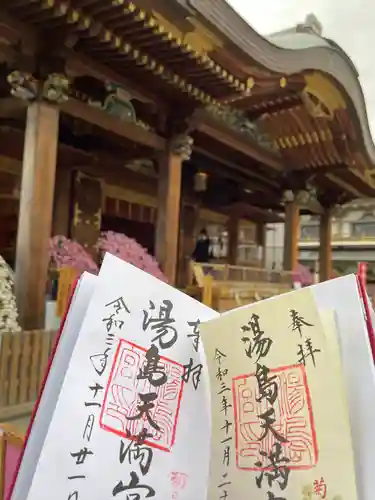 奉拝
湯島天満宮
令和三年十一月廿一日
菊
奉拝
湯島天満
令和三年十一月二
菊